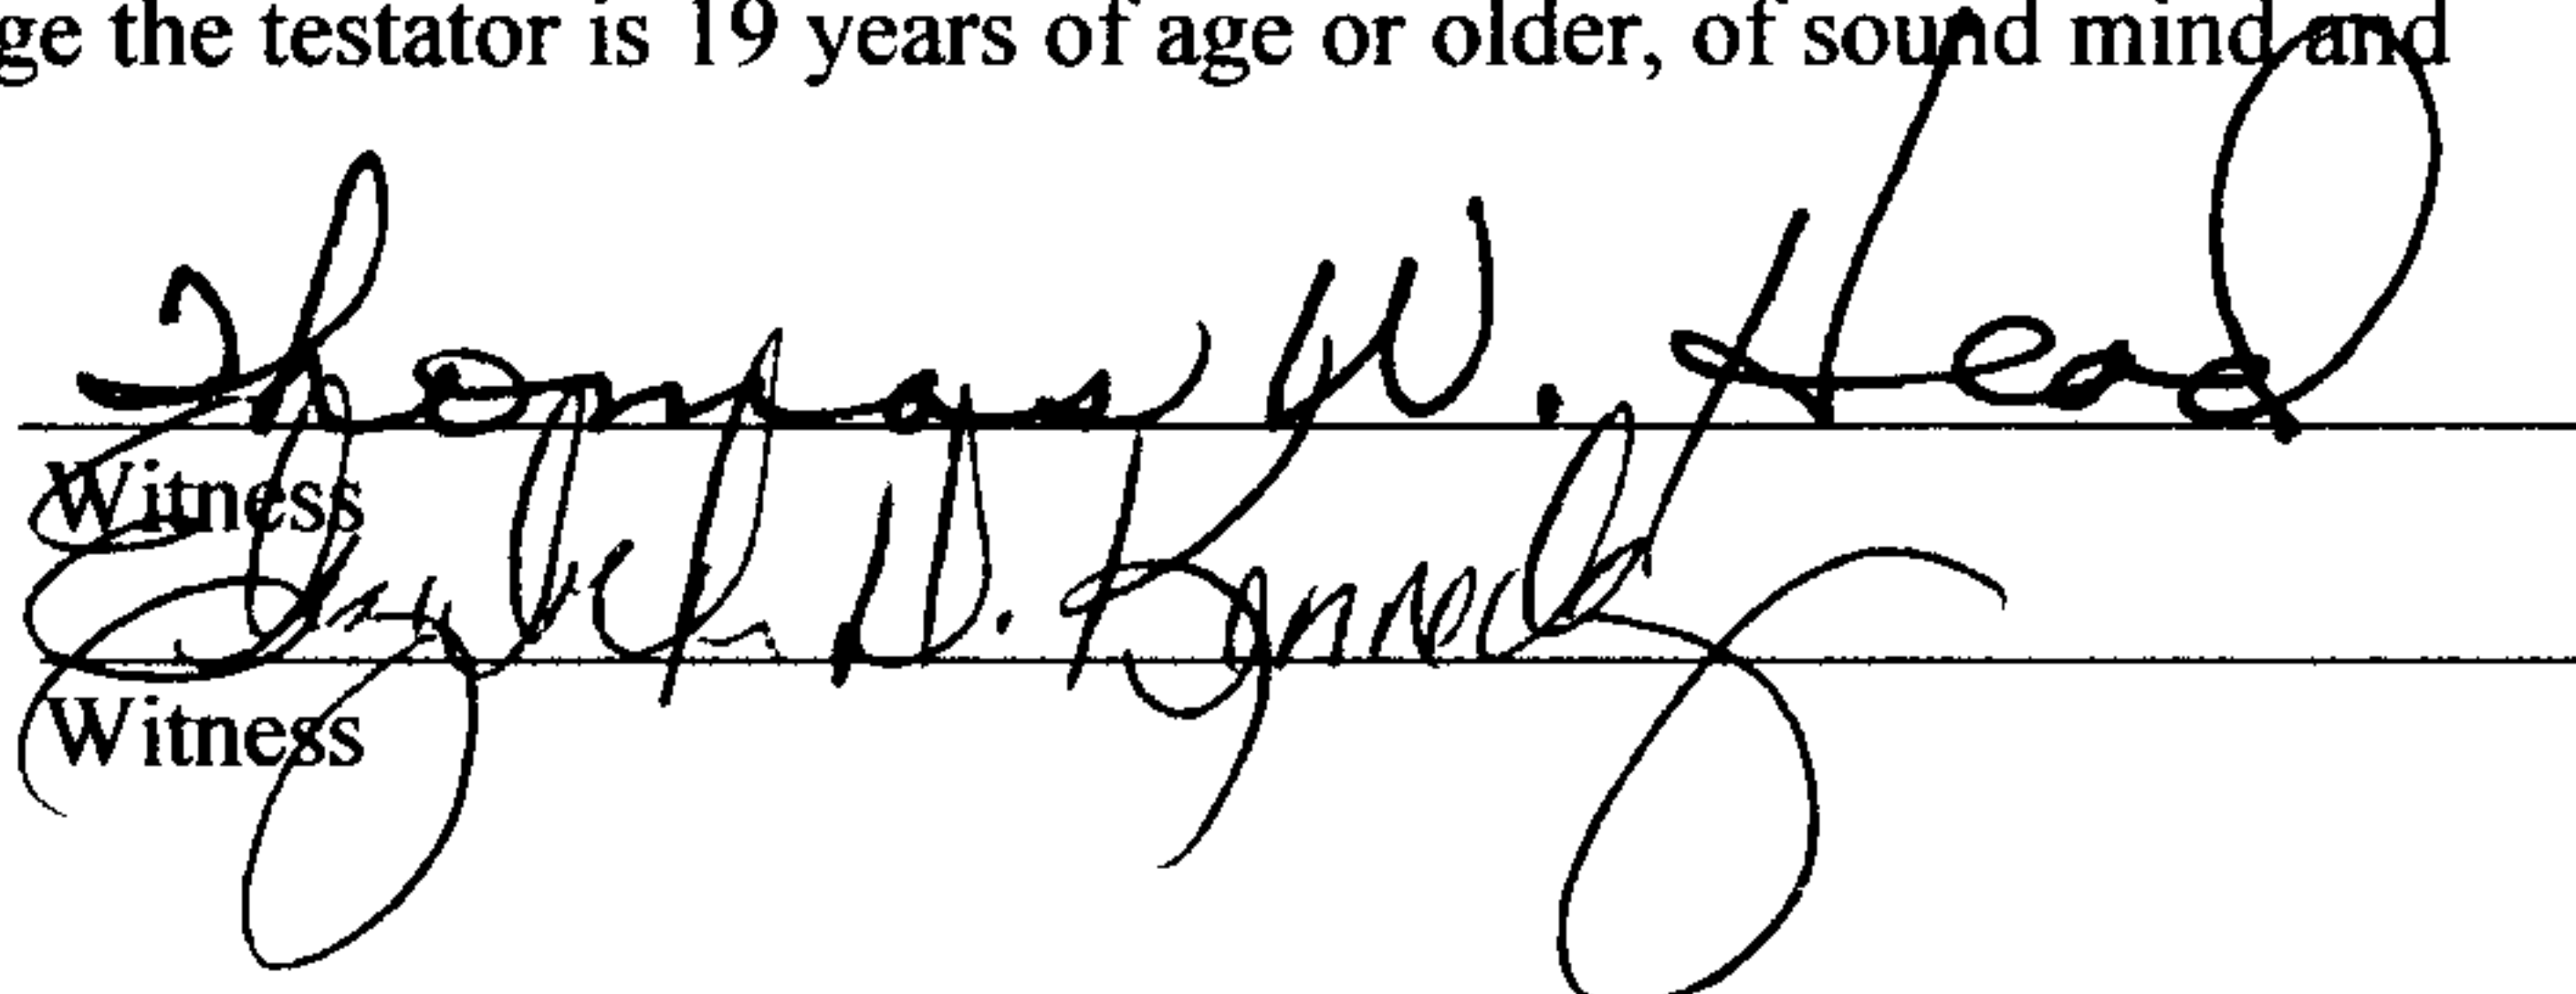 ge the testator is 19 years of age or older, of sound mind and
Thomas W. Head
Witness
Elizabeth D. Kennedy
Witness